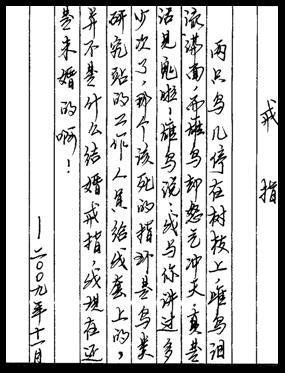 戒指
两只鸟儿停在树枝上，雌鸟泪
流满面，而雄鸟却怒气冲天，真是
活见鬼啦！雄鸟说，我与你讲过多
少次了，那个该死的指环是鸟类
研究站的工作人员给我套上的，
并不是什么结婚戒指，我现在还
是未婚的啊！
—二〇〇九年十一月